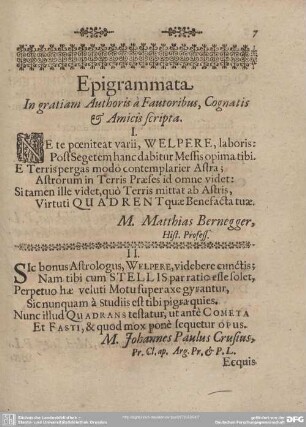 7
Epigrammata
In gratiam Authoris à Fautoribus, Cognatis
& Amicis scripta.
I.
NE te pœniteat varii, WELPERE, laboris:
Post Segetem hanc dabitur Messis opima tibi.
E Terris pergas modò contemplarier Astra;
Astrorum in Terris Præses id omne videt:
Si tamen ille videt, quò Terris mittat ab Astris,
Virtuti QUADRENT quæ Benefacta tuæ.
M. Matthias Bernegger,
Hist. Profess.
II.
SIc bonus Astrologus, WELPERE, videbere cunctis;
Nam tibi cum STELLIS par ratio esse solet,
Perpetuo hæ veluti Motu super axe gyrantur,
Sic nunquam à Studiis est tibi pigra quies.
Nunc illud QUADRANS testatur, ut antè COMETA
Et FASTI, & quod mox ponè sequetur OPUS.
M. Johannes Paulus Crusius,
Pr. Cl. ap. Arg. Pr. & P. L.
Ecquis